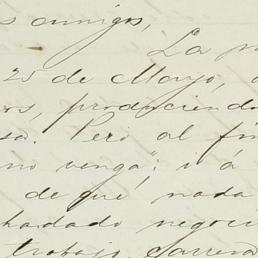 s amigos,
La p
25 de Mayo, a
os, produciendo
sa. Pero al fin
no venga"; i á
de que nada
hadado negoci
trabajo. Larrea